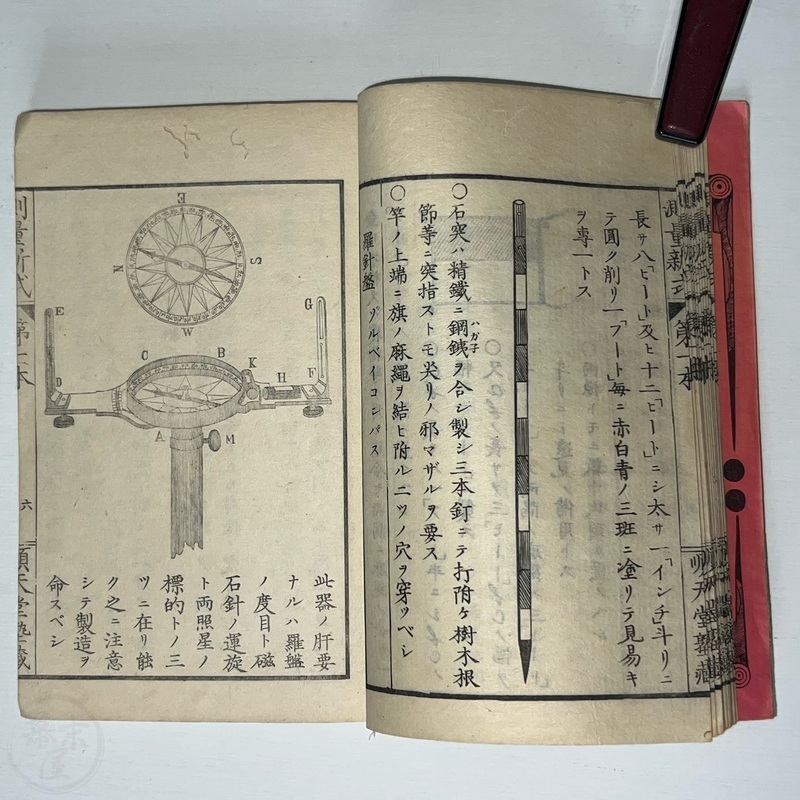 量新式
第一本
順天堂塾藏
長サ八「ビート」及ヒ十二「ビート」ニシ太サ一「インチ」斗リニ
テ圓ク削リ一「フート」毎ニ赤白青ノ三班ニ塗リテ見易キ
ヲ専一トス
〇石突ハ精鐵ニ鋼銕ヲ合シ製シ三本釘ニテ打附ケ樹木根
ハガ子
節等ニ突指ストモ尖リノ邪マザルヲ要ス
〇竿ノ上端ニ旗ノ麻繩ヲ結ヒ附ル二ツノ穴ヲ穿ツベシ
羅針盤 ゾルベイコンパス
E
N
S
W
E
G
D
C
B
K
H
F
A
M
此器ノ肝要
ナルハ羅盤
ノ度目ト磁
石針ノ運旋
ト両照星ノ
標的トノ三
ツニ在リ能
ク之ニ注意
シテ製造ヲ
命スベシ
測量新式
第一本
六
順天堂塾藏